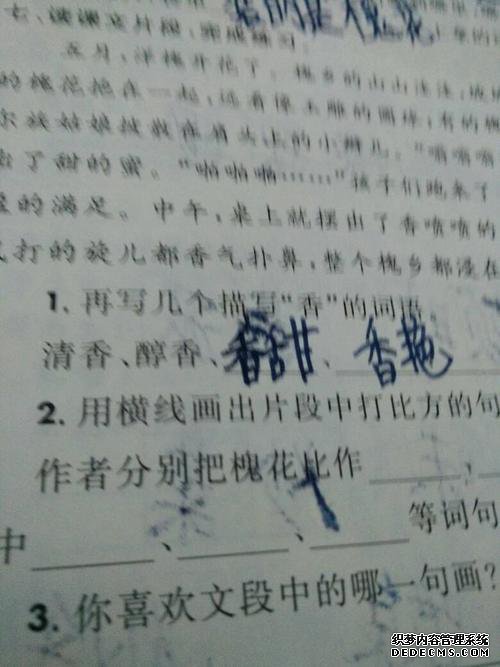 七、读课文片段，完成练习。
五月，洋槐开花了。槐乡的山山洼洼，坡坡
的槐花抱在一起，远看像玉雕的圆球；有的槐
尔族姑娘披散在肩头上的小辫儿。“嗡嗡嗡
出了甜的蜜。“啪啪啪……”孩子们跑来了
的满足。中午，桌上就摆出了香喷喷的
打的旋儿都香气扑鼻，整个槐乡都浸在
1. 再写几个描写“香”的词语。
清香、醇香、香甜、香艳
2. 用横线画出片段中打比方的句
作者分别把槐花比作
中、、等词句
3. 你喜欢文段中的哪一句画？
织梦内容管理系统
DEDECMS.COM